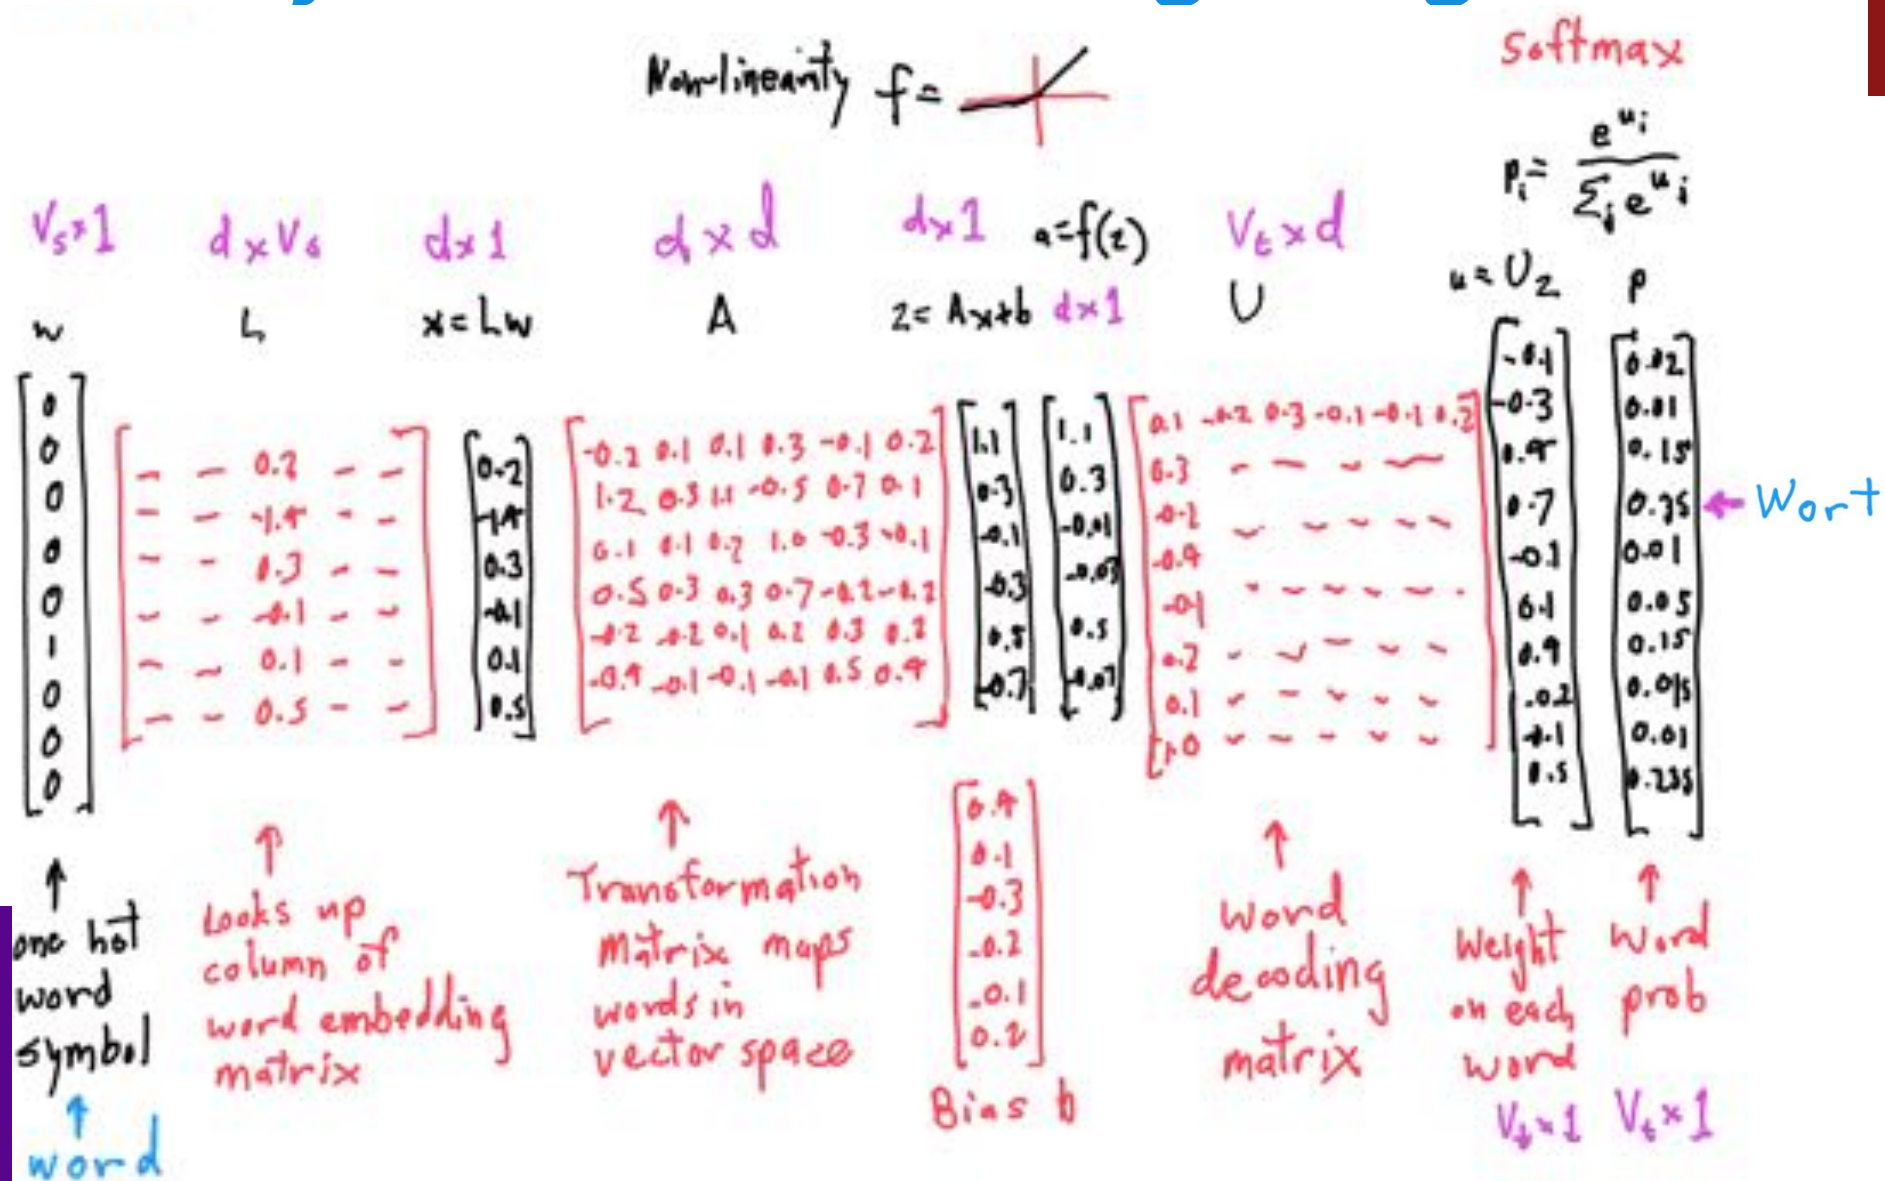 Non-linearity f =
softmax
p_i = e^{u_i} / Σ_j e^{u_j}
V_s × 1 d × V_s d × 1 d × d d × 1 a = f(z) V_t × d
w L x = Lw A z = Ax + b d × 1 U u = Uz p
0
0
0
0
0
1
0
0
0
- - 0.2 - -
- - - -
- - 0.3 - -
- - -0.1 - -
- - 0.1 - -
- - 0.5 - -
0.2
0.3
-0.1
0.1
0.5
-0.2 0.1 0.1 0.3 -0.1 0.2
1.2 0.3 1.1 -0.5 0.7 0.1
0.1 0.1 0.2 1.0 -0.3 -0.1
0.5 0.3 0.3 0.7 -0.2 -0.2
-0.2 -0.2 0.1 0.2 0.3 0.2
-0.4 -0.1 -0.1 -0.1 0.5 0.4
1.1
0.3
-0.1
-0.3
0.5
-0.7
1.1
0.3
-0.01
-0.03
0.5
-0.07
0.1 -0.2 0.3 -0.1 -0.1 0.2
0.3
-0.4
-0.1
0.2
0.1
-0.1
-0.3
0.7
0.1
0.9
-0.2
0.5
0.02
0.01
0.15
0.35
0.01
0.05
0.15
0.01
0.235
Wort
0.4
0.1
-0.3
-0.2
-0.1
0.2
Bias b
one hot
word
symbol
word
Looks up
column of
word embedding
matrix
Transformation
Matrix maps
words in
vector space
word
decoding
matrix
Weight
on each
word
V_t × 1
Word
prob
V_t × 1